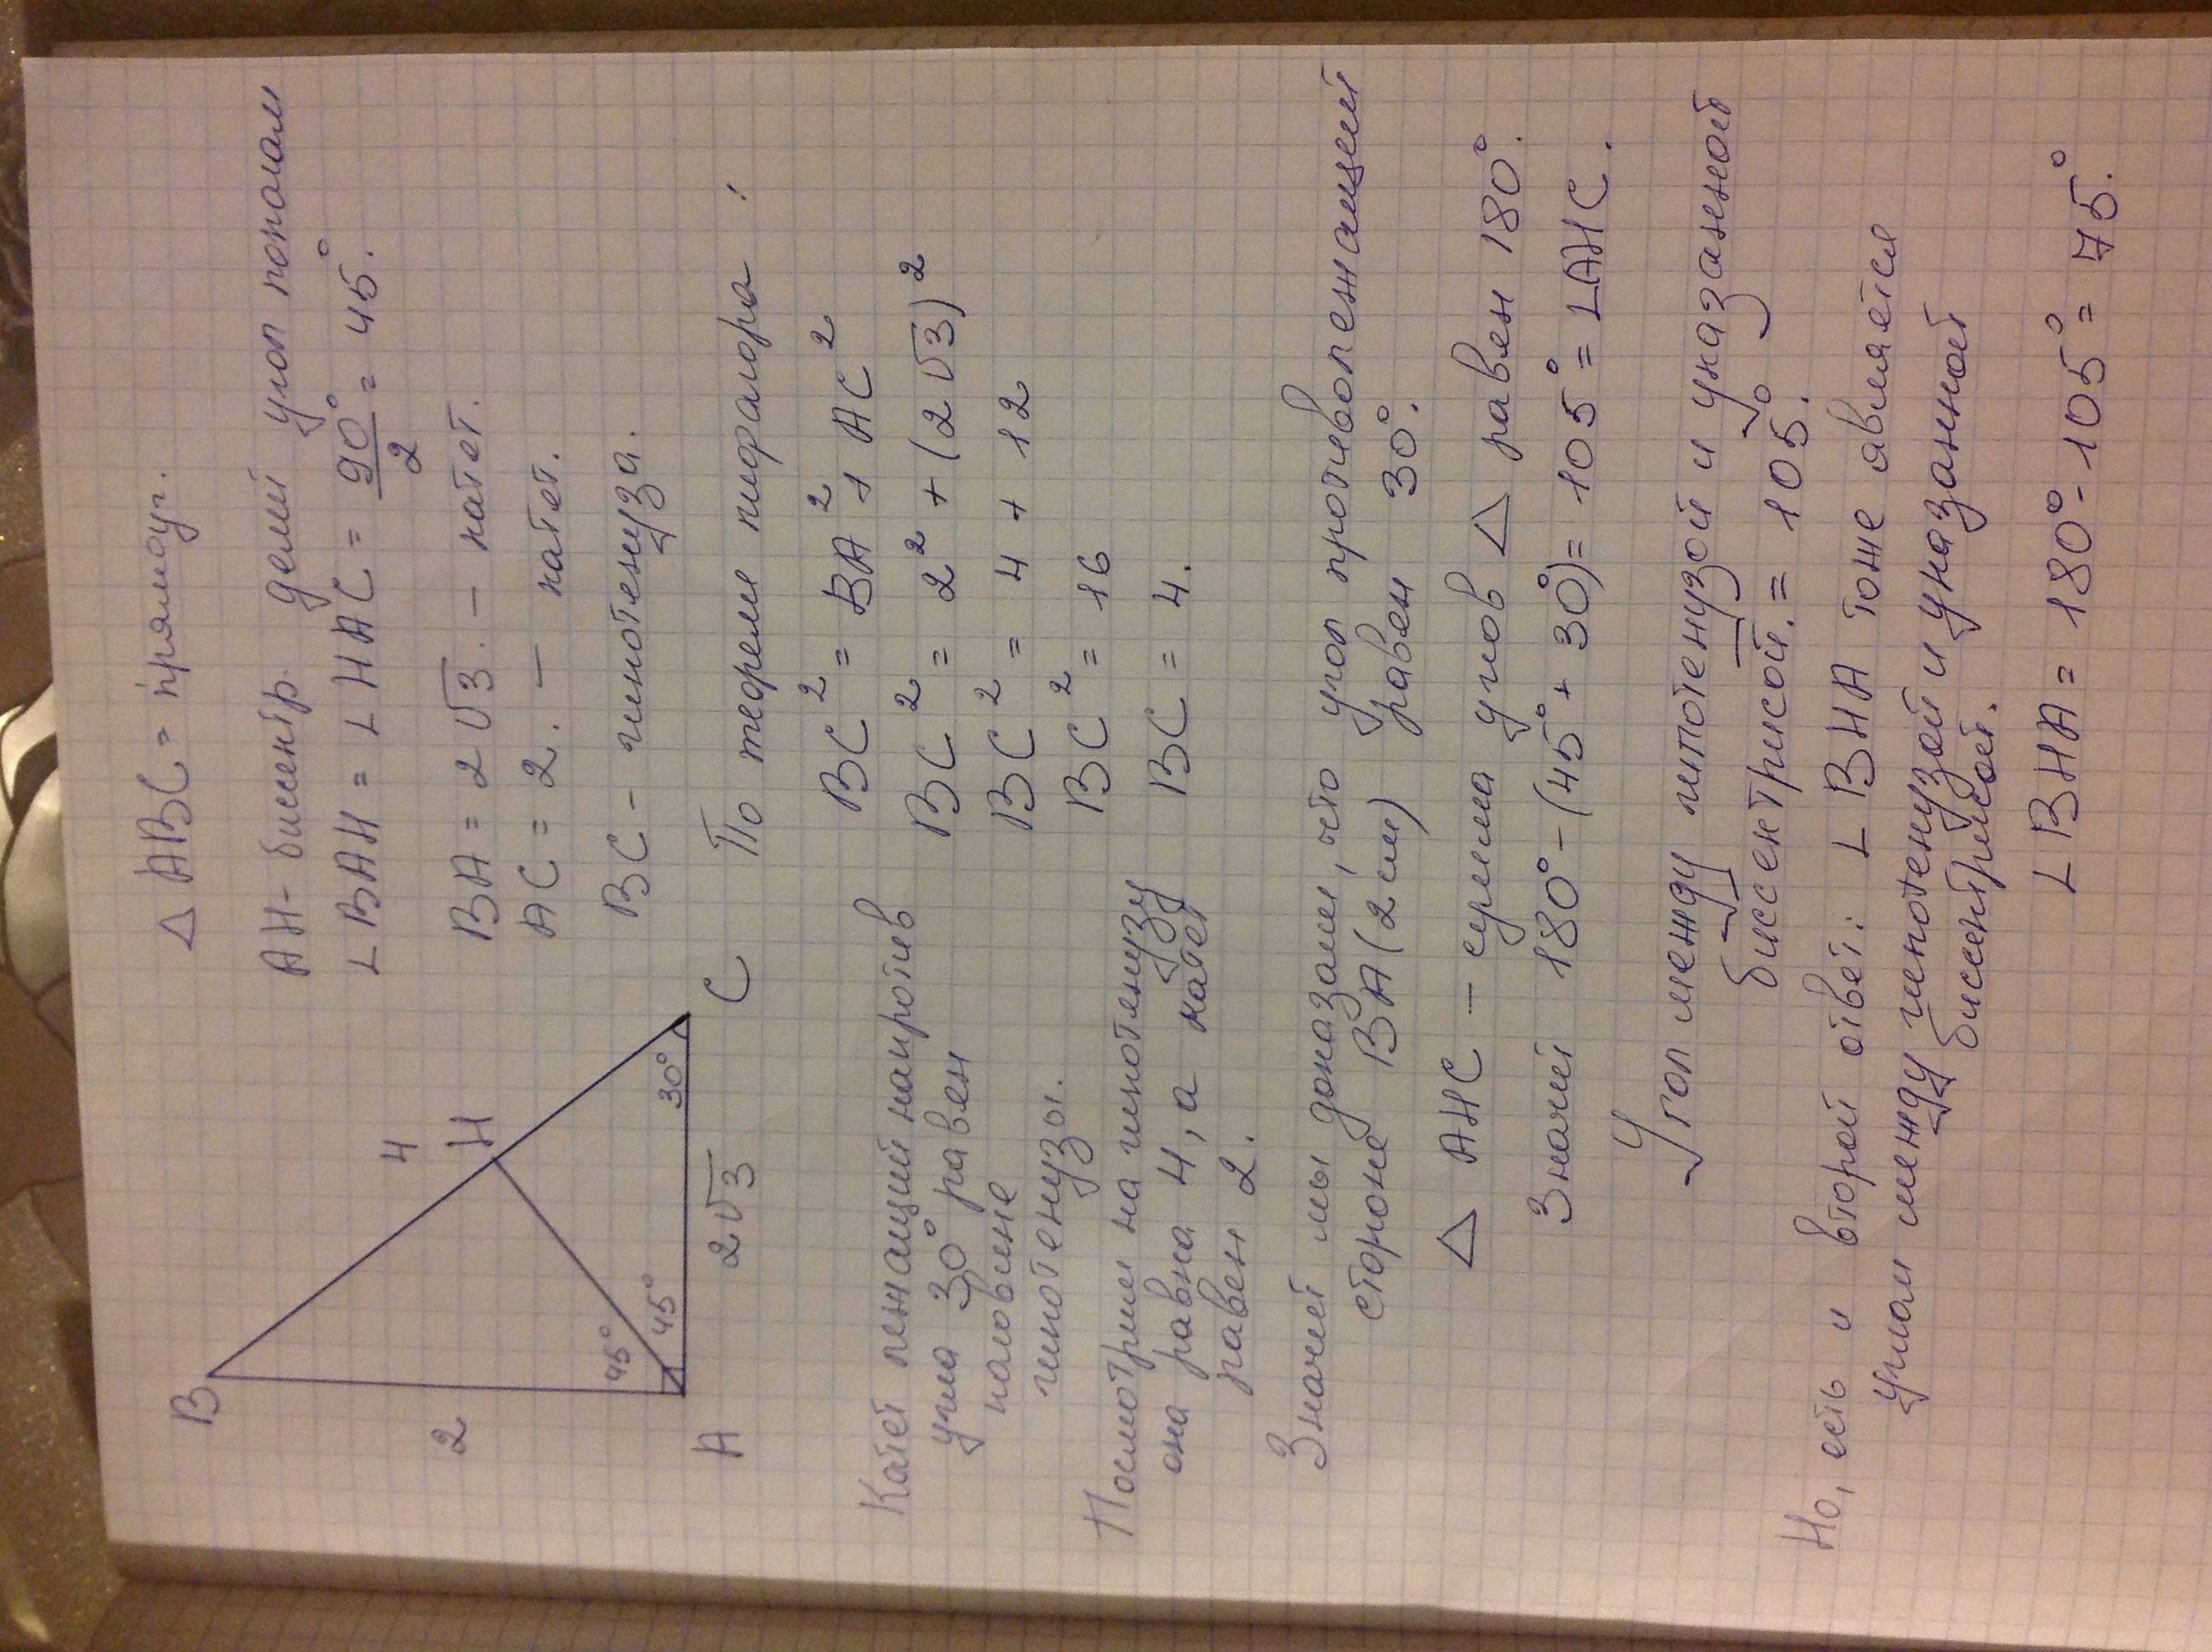 △ ABC = прямоуг.
AH - биссектр. делит угол пополам
∟BAH = ∟HAC = 90°/2 = 45°.
BA = 2√3. — катет.
AC = 2. — катет.
BC - гипотенуза.
B
2
4
H
45°
45°
30°
A
2√3
C
По теореме пифагора:
BC² = BA² + AC²
BC² = 2² + (2√3)²
BC² = 4 + 12
BC² = 16
BC = 4.
Катет лежащий напротив
угла 30° равен
половине
гипотенузы.
Посмотрим на гипотенузу
она равна 4, а катет
равен 2.
Значет мы доказали, что угол противолежащей
стороне BA (2 см) равен 30°.
△ AHC — сумма углов △ равен 180°.
Значет 180° - (45° + 30°) = 105° = ∟AHC.
Угол между гипотенузой и указанной
биссектрисой. = 105°.
Но, есть и второй ответ: ∟ BHA тоже является
углом между гипотенузой и указанной
биссектрисой.
∟ BHA = 180° - 105° = 75.°